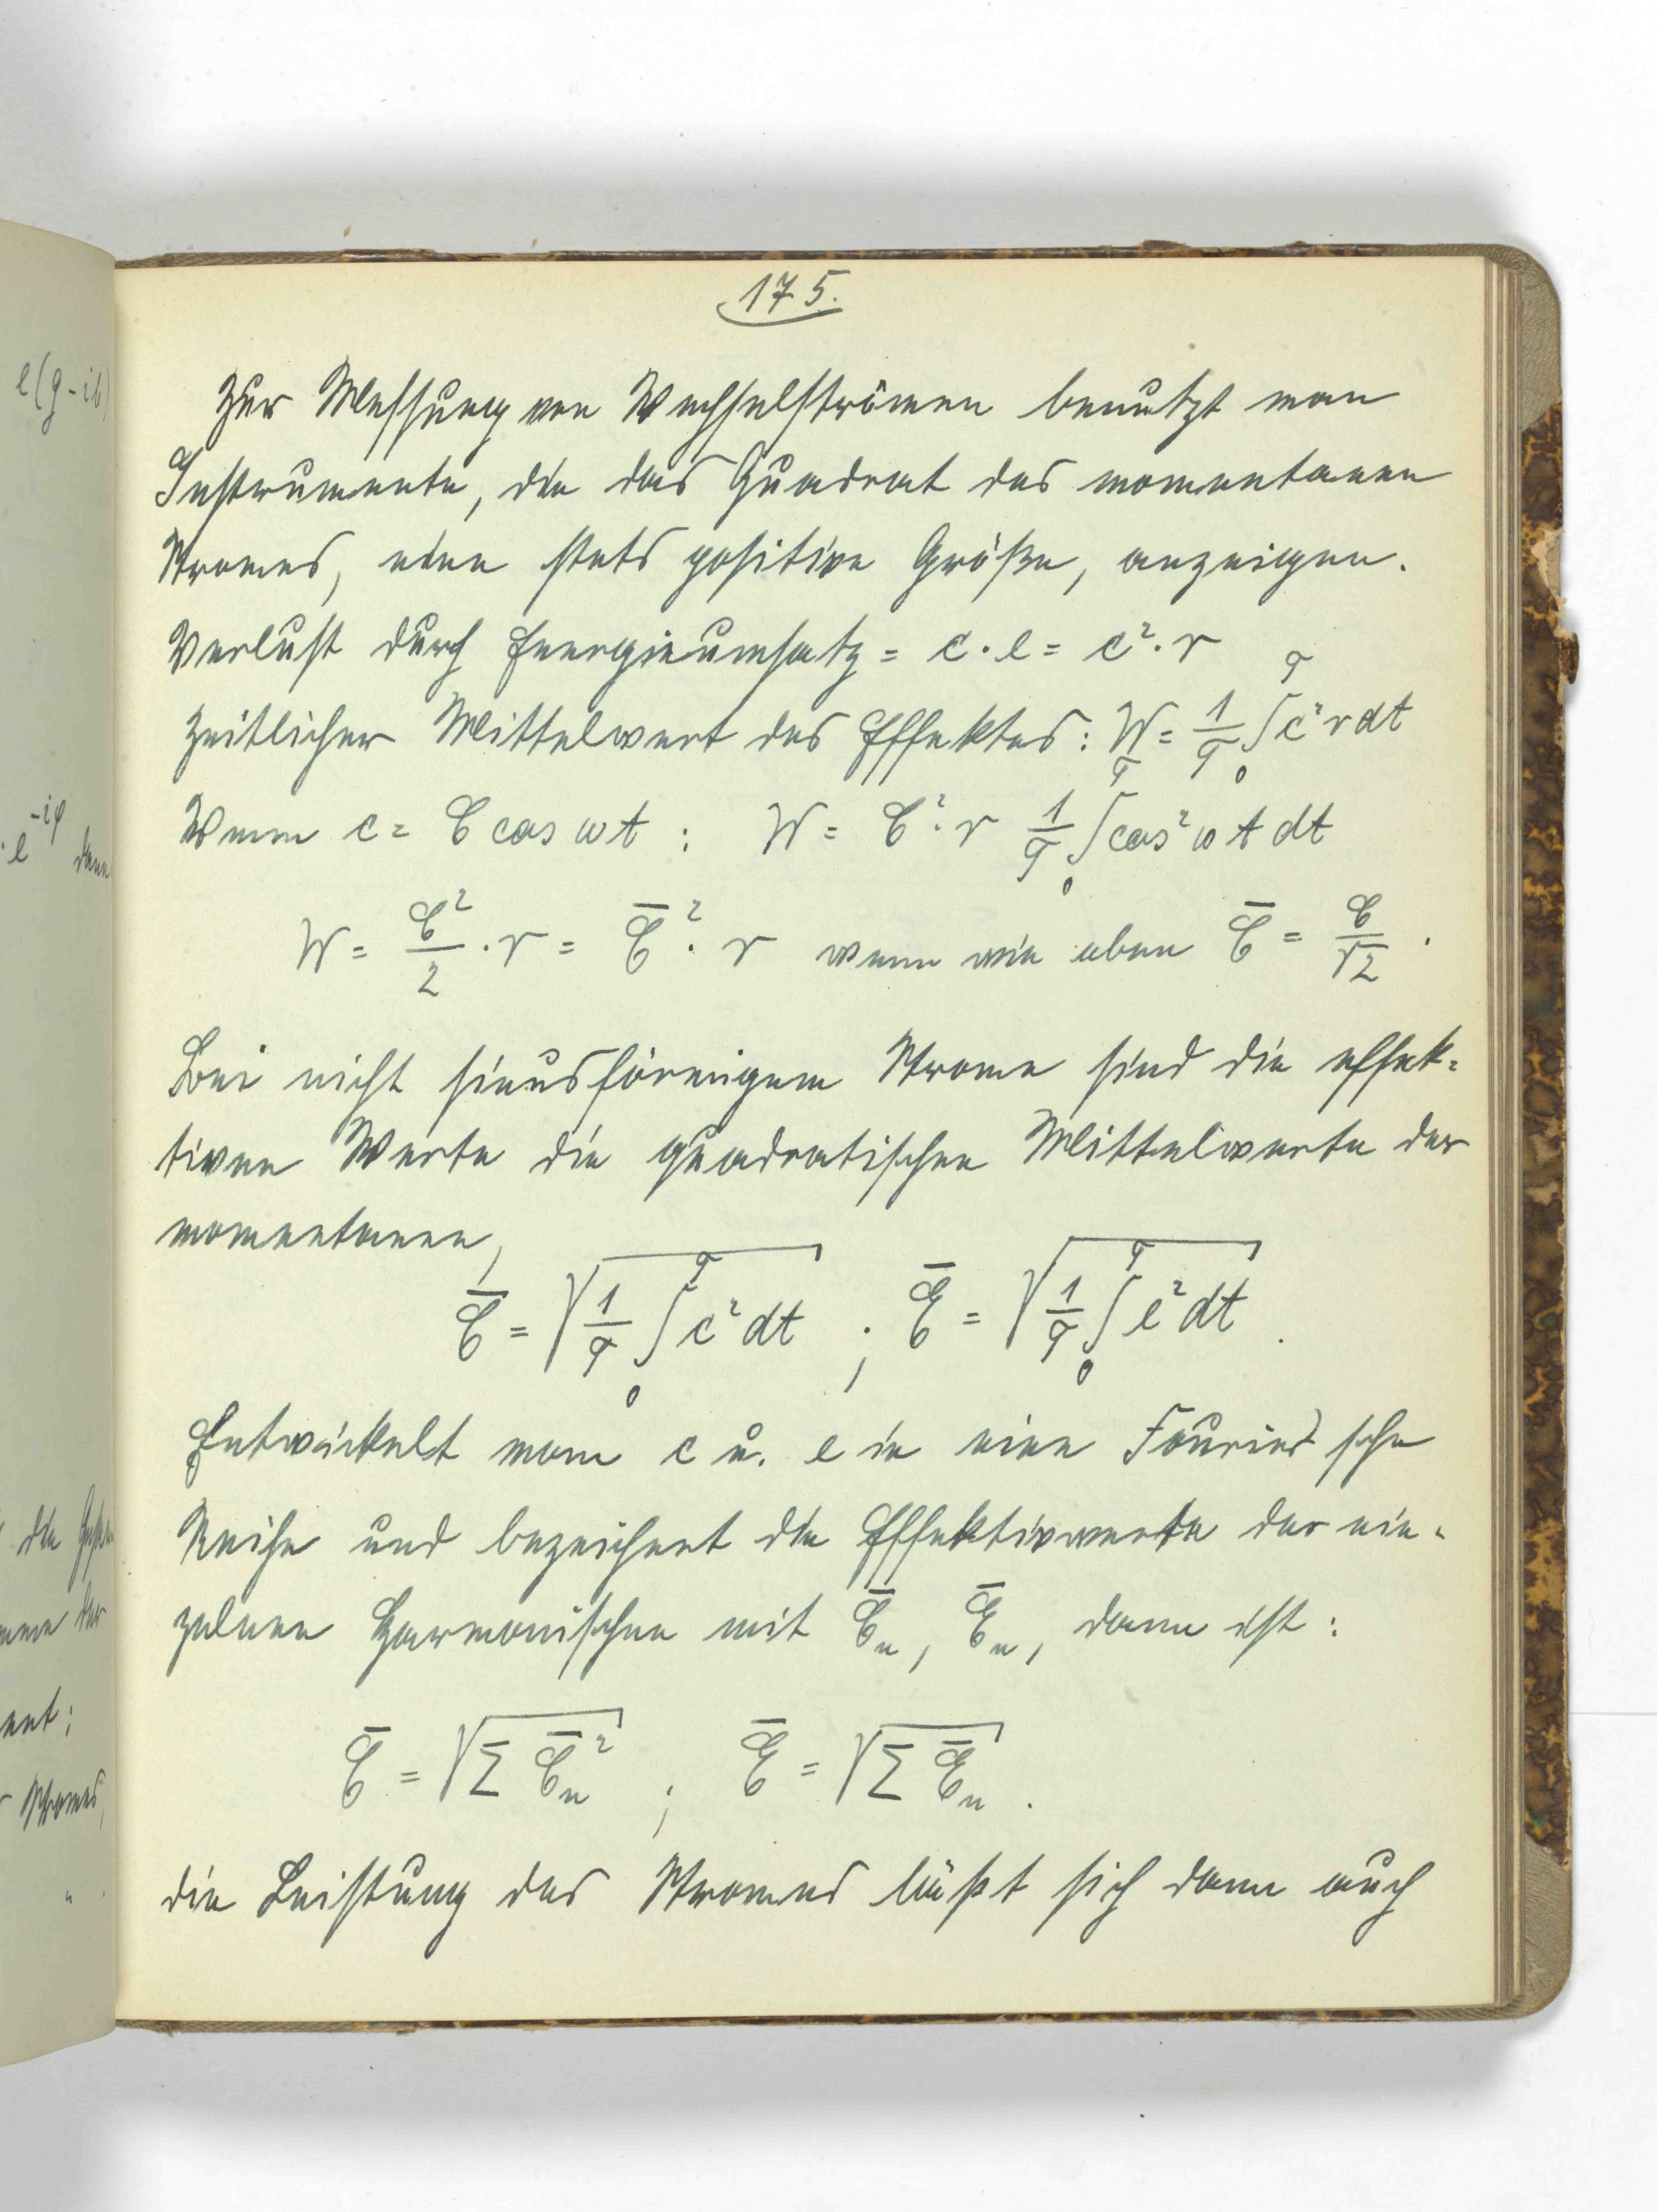 175.
Zur Messung von Wechselströmen benutzt man
Instrumente, die das Quadrat des momentanen
Stromes, eine stets positive Größe, anzeigen.
Verlust durch Energieumsatz = c · e = c² · r
Zeitlicher Mittelwert des Effektes: W = 1/T ∫₀ᵀ c² r dt
Wenn c = C cos ωt : W = C² · r 1/T ∫₀ᵀ cos² ωt dt
W = C²/2 · r = C̄² · r wenn wie oben C̄ = C/√2 .
Bei nicht sinusförmigem Strome sind die effek-
tiven Werte die quadratischen Mittelwerte der
momentanen,
C̄ = √(1/T ∫₀ᵀ c² dt) ; Ē = √(1/T ∫₀ᵀ e² dt) .
Entwickelt man c u. e in eine Fourier'sche
Reihe und bezeichnet die Effektivwerte der ein-
zelnen Harmonischen mit C̄ₙ, Ēₙ, dann ist:
C̄ = √(Σ C̄ₙ²) ; Ē = √(Σ Ēₙ) .
die Leistung des Stromes läßt sich dann auch
e(g-ib)
· e^-iφ dann
die
der
Stromes,